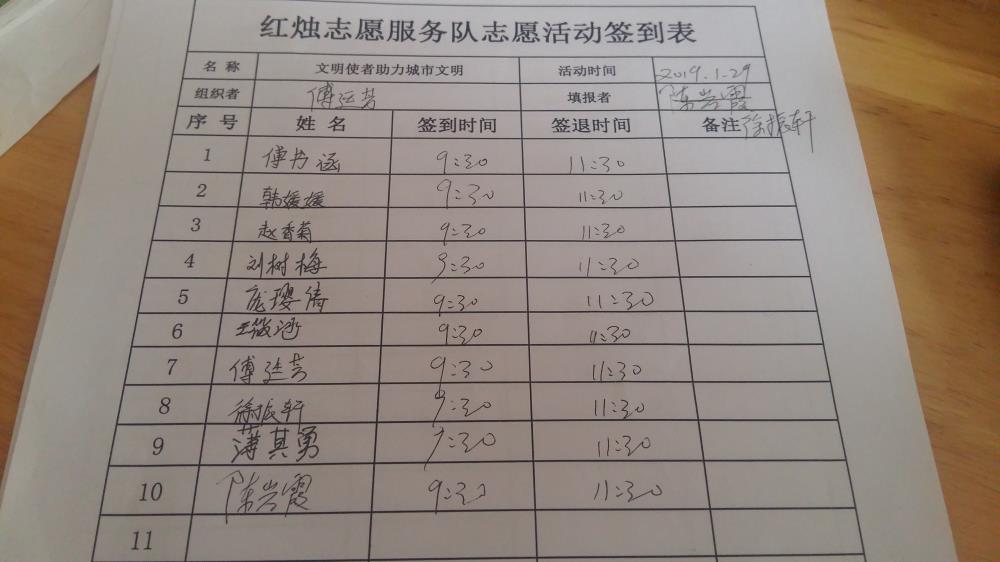 红烛志愿服务队志愿活动签到表
名 称 文明使者助力城市文明 活动时间 2019.1.29
组织者 傅延芳 填报者 陈岩霞
序 号 姓 名 签到时间 签退时间 备注 徐振轩
1 傅书涵 9:30 11:30
2 韩媛媛 9:30 11:30
3 赵香菊 9:30 11:30
4 刘树梅 9:30 11:30
5 庞璎倩 9:30 11:30
6 王筱涵 9:30 11:30
7 傅延芳 9:30 11:30
8 徐振轩 9:30 11:30
9 薄其勇 9:30 11:30
10 陈岩霞 9:30 11:30
11